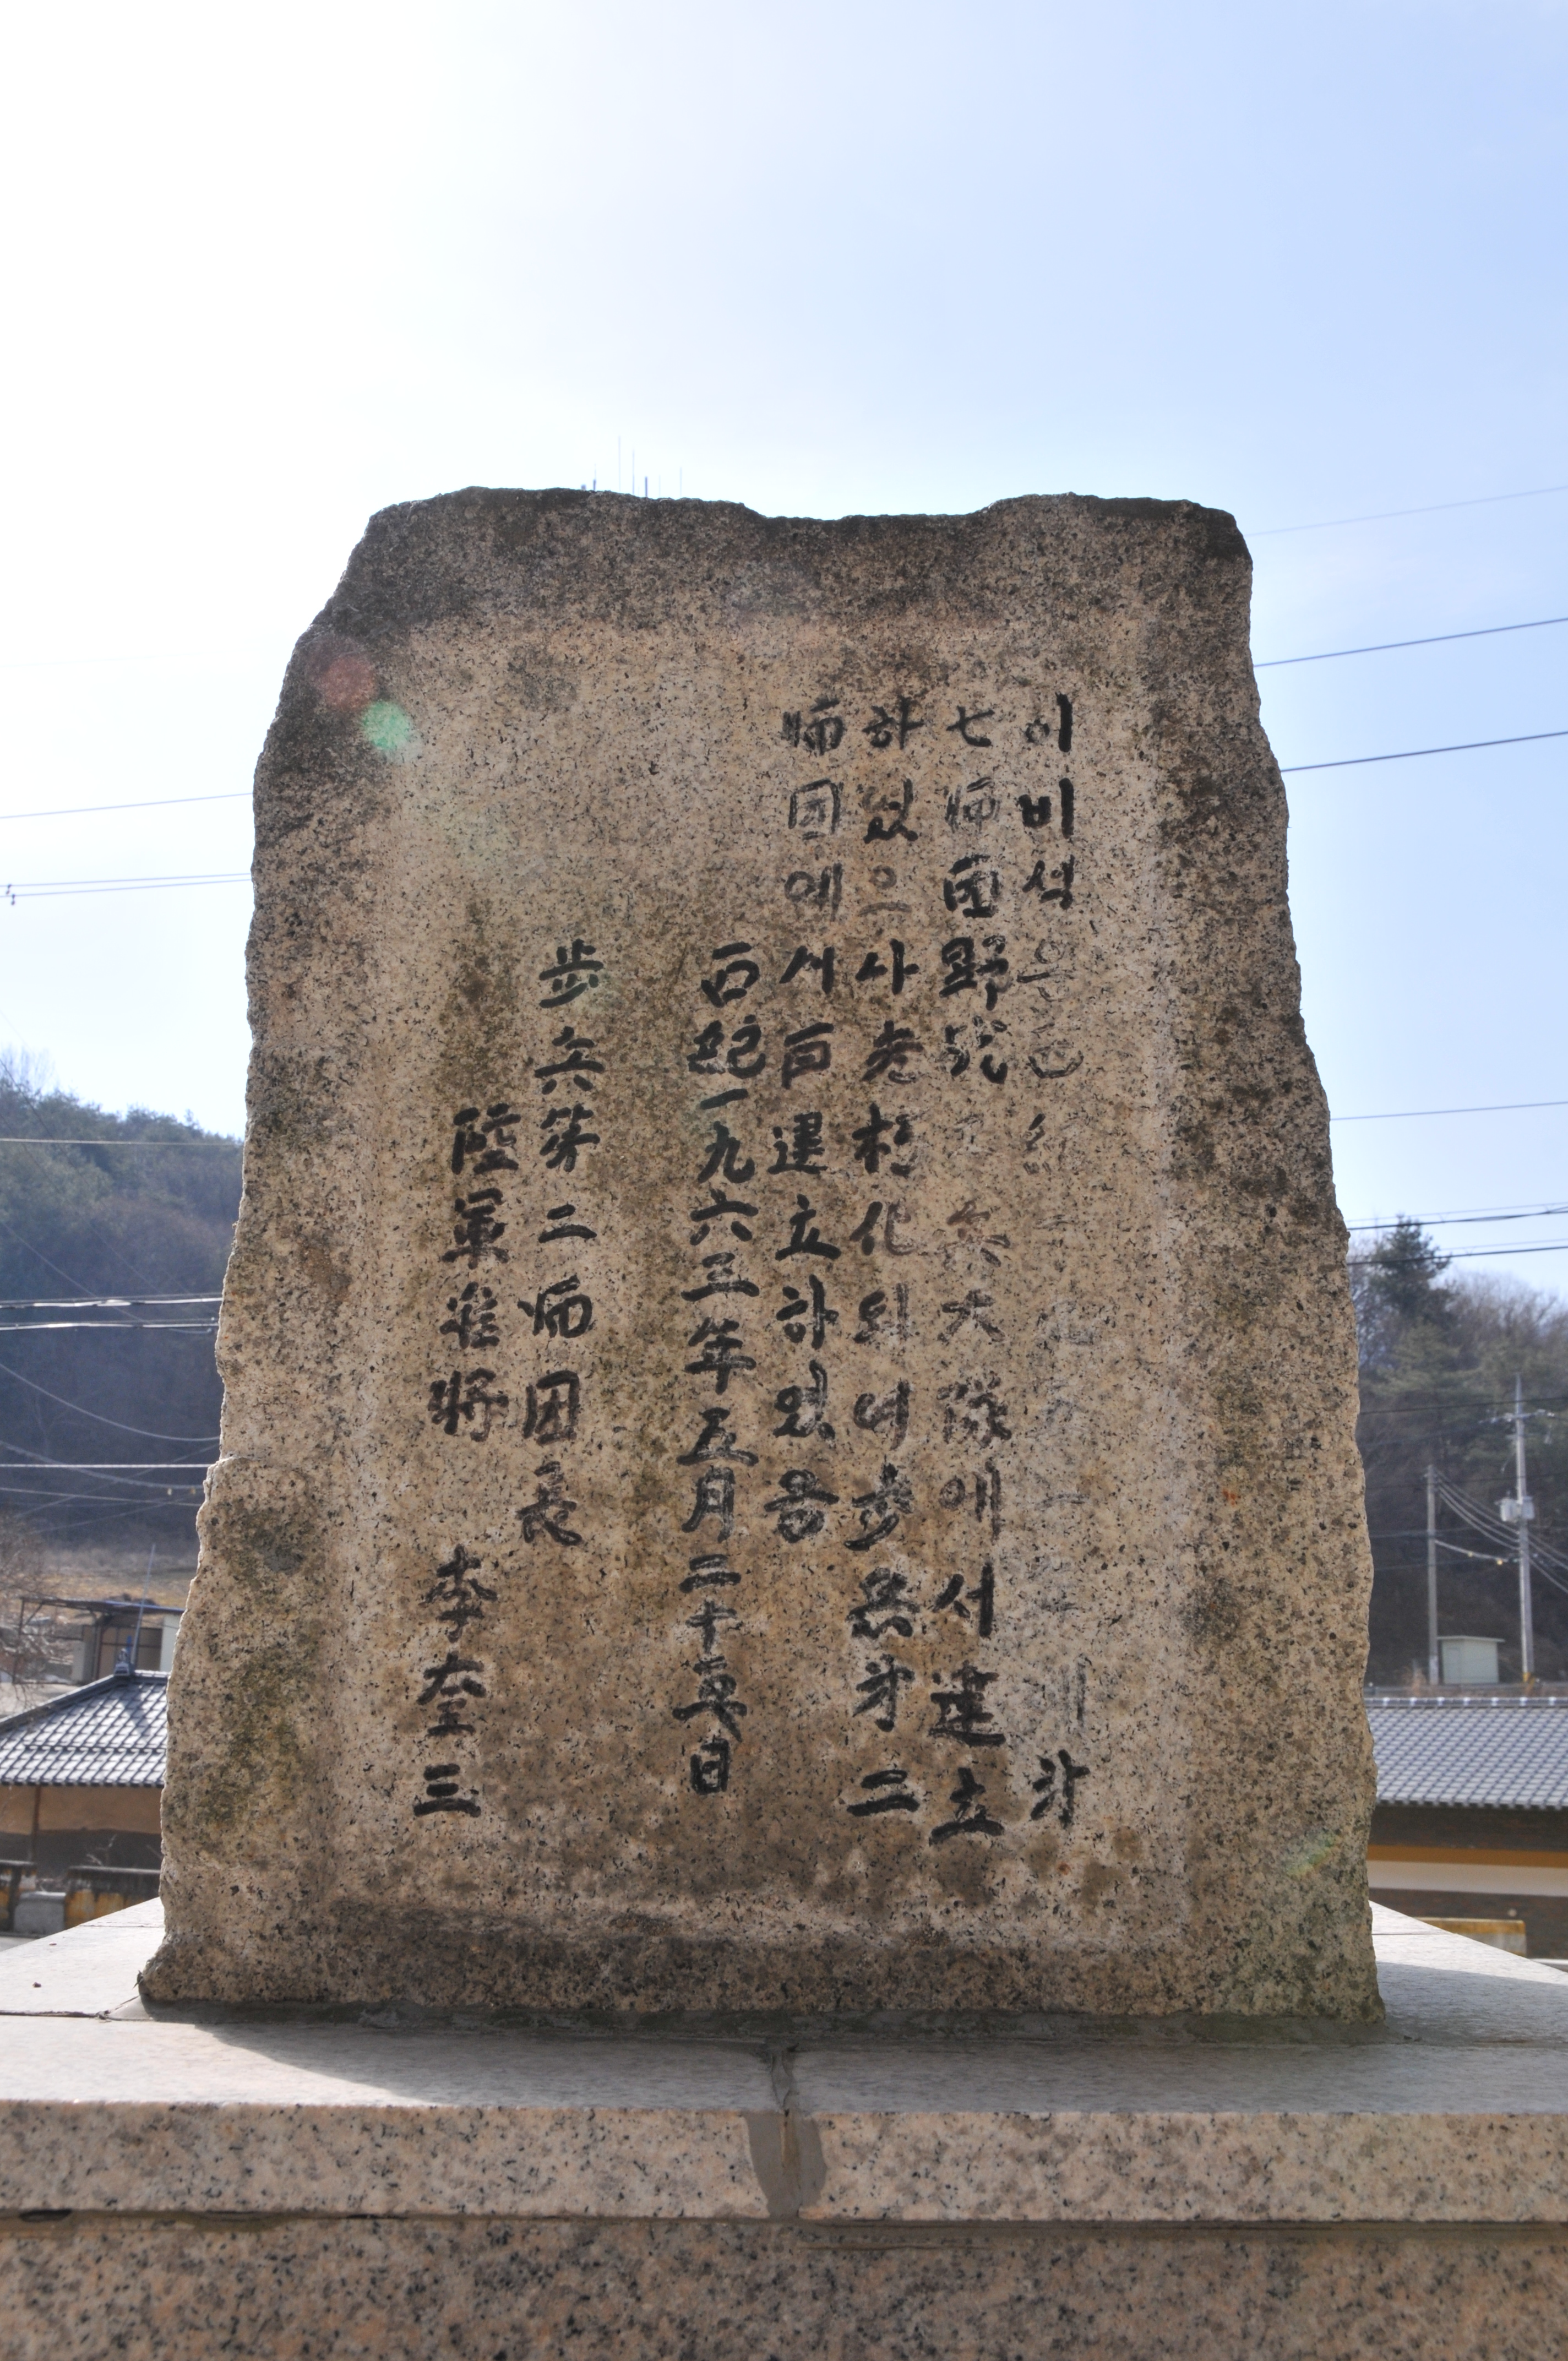 이 비석은 第
七師團野砲 工兵大隊에서 建立
하였으나 老朽化되여 步兵第二
師団에서 再建立하였음
西紀一九六三年五月二十五日
步兵第二師団長
陸軍准將 李奎三